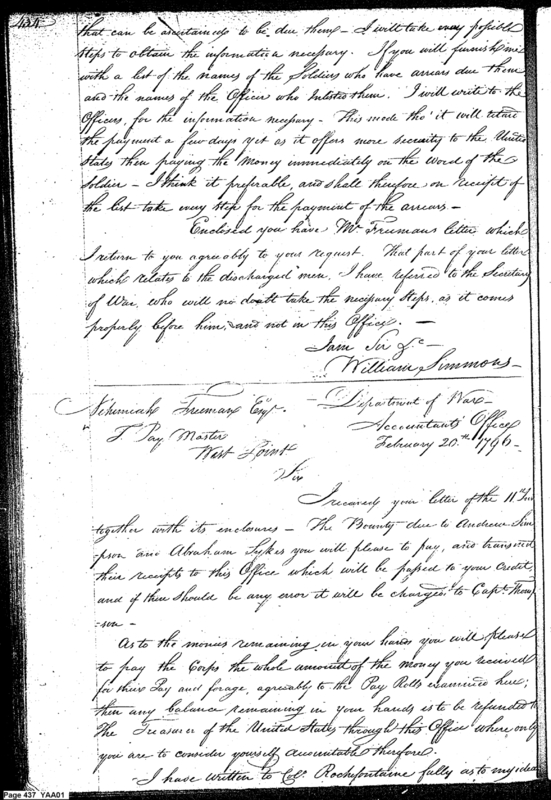 434
that can be ascertained to be due them – I will take every possible
steps to obtain the information necessary. If you will furnish me
with a list of the names of the Soldiers who have arrears due them
and the names of the Officer who Inlisted them. I will write to the
Officers, for the information necessary – This mode tho' it will retard
the payment a few days yet as it offers more security to the United
States then paying the Money immediately on the word of the
Soldier – I think it preferable, and shall therefore on receipt of
the list take every step for the payment of the arrears –
Enclosed you have Mr Freemans letter which
I return to you agreeably to your request. That part of your letter
which relates to the discharged men, I have referred to the Secretary
of War, who will no doubt take the necessary steps, as it comes
properly before him, and not in this Office. –
I am Sir &c –
William Simmons –
Nehemiah Freeman Esqr. – Department of War –
T Pay Master Accountants Office
West Point February 20th 1796 –
Sir
I received your letter of the 11th Ins
together with its enclosures – The Bounty due to Andrew Sim
-pson and Abraham Sykes you will please to pay, and transmit
their receipts to this Office which will be passed to your Credit,
and if there should be any error it will be charged to Capt. Thomp
-son –
As to the monies remaining in your hands you will please
to pay the Corps the whole amount of the money you received
for their Pay and forage, agreeably to the Pay Rolls examined here;
then any balance remaining in your hands is to be refunded to
The Treasurer of the United States through this Office where only
you are to consider yourself accountable therefore.
– I have written to Colo. Rochefontaine fully as to my idea
Page 437 YAA01